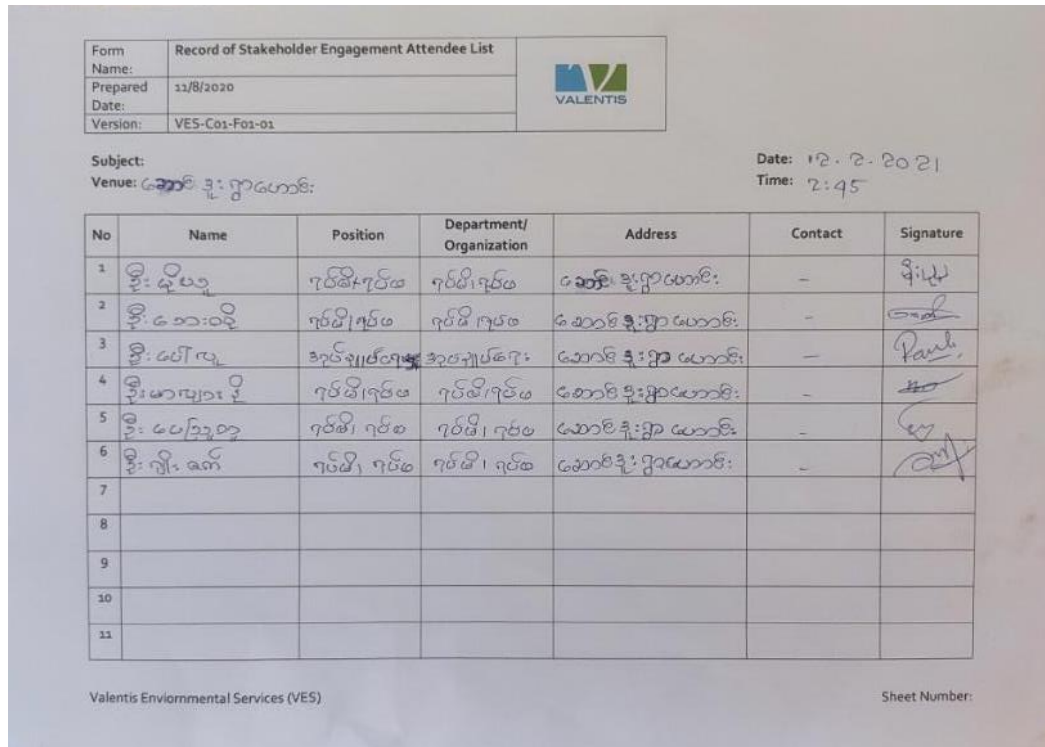 Form Name: Record of Stakeholder Engagement Attendee List
Prepared Date: 11/8/2020
Version: VES-C01-F01-01
VALENTIS
Subject:
Date: 12.2.2021
Venue: ဆောင်ဒူးရွာဟောင်း
Time: 2:45
No Name Position Department/ Organization Address Contact Signature
1 ဦး ရပ်မိ၊ရပ်ဖ ရပ်မိ၊ရပ်ဖ ဆောင်ဒူးရွာဟောင်း -
2 ဦး ရပ်မိ၊ရပ်ဖ ရပ်မိ၊ရပ်ဖ ဆောင်ဒူးရွာဟောင်း -
3 ဦးပေါ်လူ အုပ်ချုပ်ရေးမှူး အုပ်ချုပ်ရေး ဆောင်ဒူးရွာဟောင်း - Paul
4 ဦး ရပ်မိ၊ရပ်ဖ ရပ်မိ၊ရပ်ဖ ဆောင်ဒူးရွာဟောင်း -
5 ဦး ရပ်မိ၊ရပ်ဖ ရပ်မိ၊ရပ်ဖ ဆောင်ဒူးရွာဟောင်း -
6 ဦး ရပ်မိ၊ရပ်ဖ ရပ်မိ၊ရပ်ဖ ဆောင်ဒူးရွာဟောင်း -
7
8
9
10
11
Valentis Enviornmental Services (VES) Sheet Number: